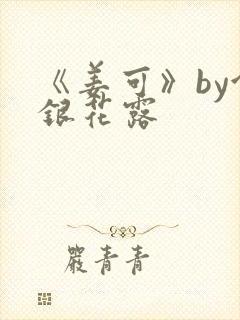 《姜可》by
銀花露
嚴青青